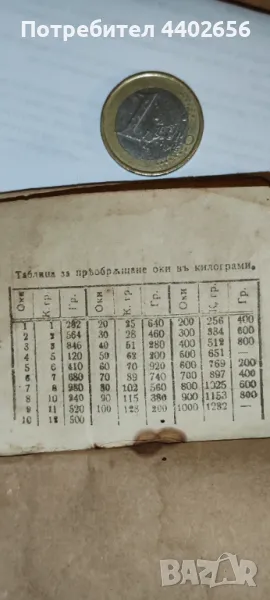 Потребител 4402656
Таблица за прѣобрѫщане оки въ килограми.
Оки К. гр. Гр. Оки К. гр. Гр. Оки К. гр. Гр.
1 1 282 20 25 640 200 256 400
2 2 564 30 38 460 300 384 600
3 3 846 40 51 280 400 512 800
4 5 120 50 200 500 651 —
5 6 410 60 920 600 769 200
6 7 680 70 89 740 700 897 400
7 8 980 80 102 560 800 1025 600
8 10 240 90 115 380 900 1153 800
9 11 520 100 128 200 1000 1282 —
10 12 500
bazar.bg